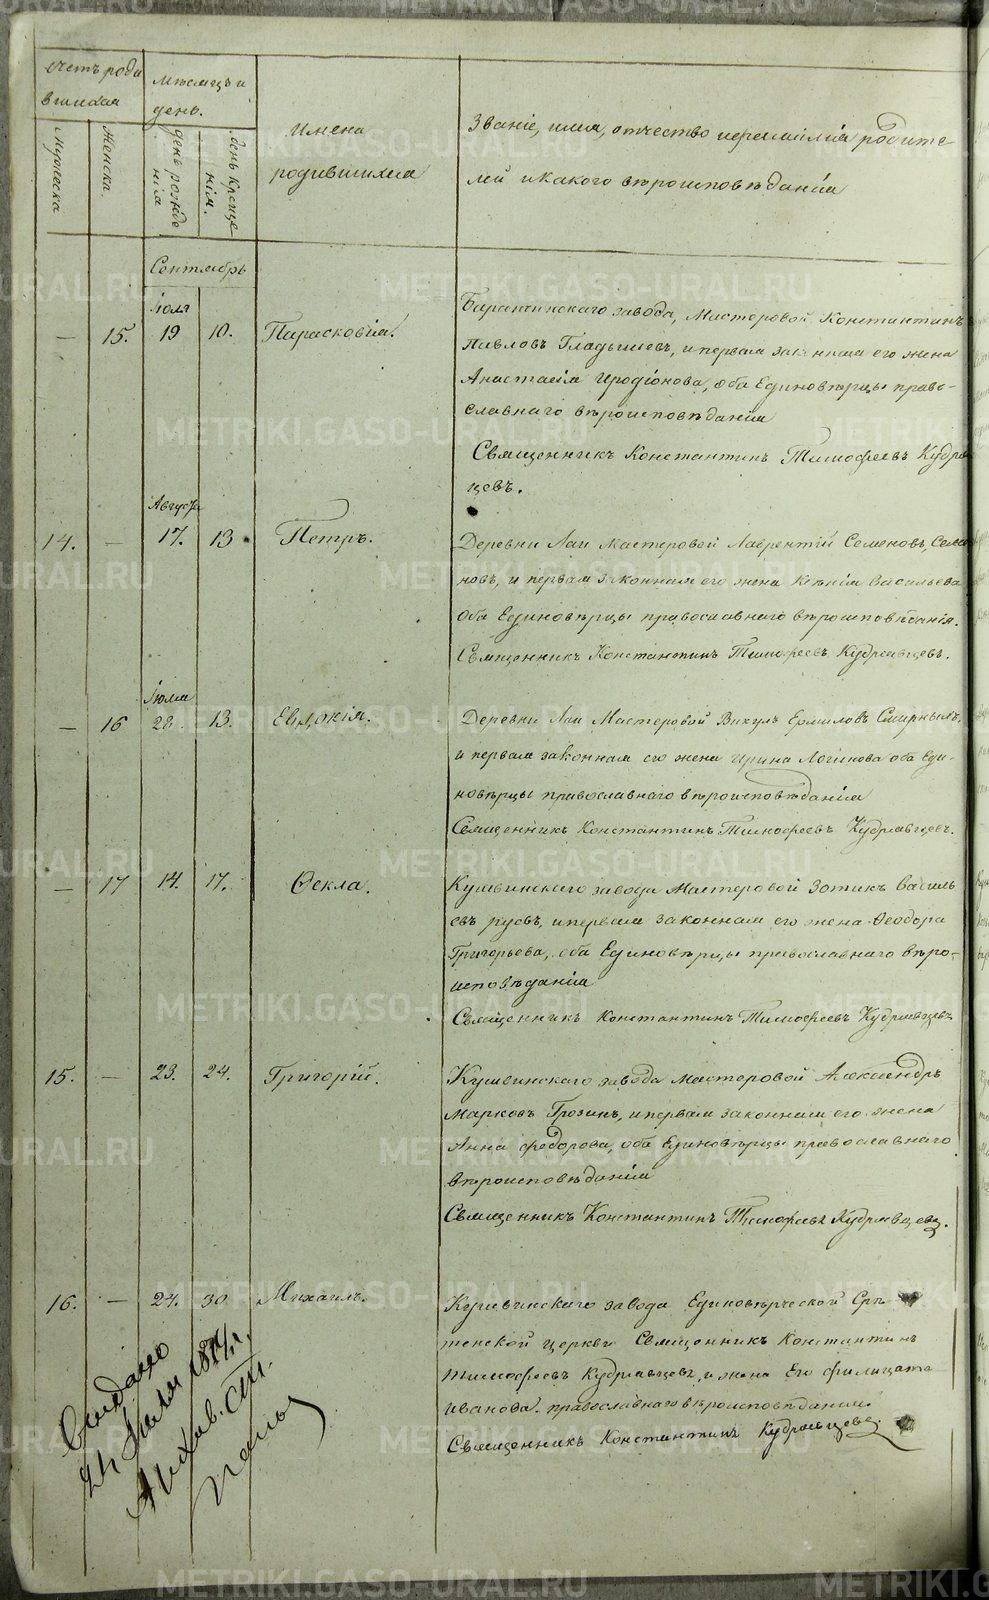 счетъ роди
вшихся
мѣсяцъ и
день.
Имена
родившихся
Званіе, имя, отчество и фамилія родите-
лей и какого вѣроисповѣданія
Мужеска
Женска.
день рожде
нія
день креще
нія.
Сентябрь
Іюля
— 15. 19 10. Парасковія.
Баранчинскаго завода, Мастеровой Константинъ
Павловъ Гладышевъ, и первая законная его жена
Анастасія Иродіонова, оба Единовѣрцы право-
славнаго вѣроисповѣданія
Священникъ Константинъ Тимофеевъ Кудряв
цевъ.
Августа
14. — 17. 13. Петръ.
Деревни Лаи Мастеровой Лаврентій Семеновъ, Семе
новъ, и первая законная его жена Ксенія Васильева
оба Единовѣрцы православнаго вѣроисповѣданія.
Священникъ Константинъ Тимофеевъ Кудрявцевъ.
Іюля
— 16 28. 13. Евдокія.
Деревни Лаи Мастеровой Викулъ Ермиловъ Смирныхъ,
и первая законная его жена Ирина Логинова оба Еди-
новѣрцы православнаго вѣроисповѣданія
Священникъ Константинъ Тимофеевъ Кудрявцевъ.
— 17 14. 17. Ѳекла.
Кушвинскаго завода Мастеровой Зотикъ Василь
евъ русъ, и первая законная его жена Ѳеодора
Григорьева, оба Единовѣрцы православнаго вѣро-
исповѣданія
Священникъ Константинъ Тимофеевъ Кудрявцевъ
15. — 23. 24. Григорій.
Кушвинскаго завода Мастеровой Александръ
Марковъ Грозинъ, и первая законная его жена
Анна Федорова, оба Единовѣрцы православнаго
вѣроисповѣданія
Священникъ Константинъ Тимофеевъ Кудрявцевъ.
16. — 24. 30 Михаилъ.
Кушвинскаго завода Единовѣрческой Срѣ
тенской церкви Священникъ Константинъ
Тимофеевъ Кудрявцевъ, и жена Его Филицата
Иванова. православнаго вѣроисповѣданія
Священникъ Константинъ Кудрявцевъ.
METRIKI.GASO-URAL.RU